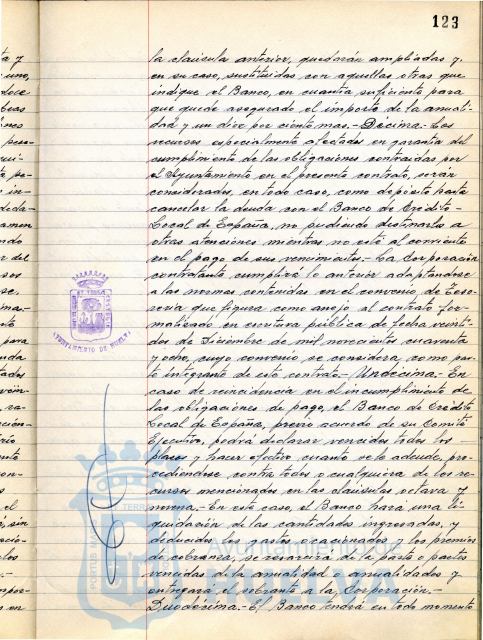 123
la claúsula anterior, quedarán ampliadas y,
en su caso, sustituidas con aquellas otras que
indique el Banco, en cuantía suficiente para
que quede asegurado el importe de la anuali-
dad y un diez por ciento mas.- Décima.- Los
recursos especialmente afectados en garantía del
cumplimiento de las obligaciones contraidas por
el Ayuntamiento en el presente contrato, serán
considerados, en todo caso, como depósito hasta
cancelar la deuda con el Banco de Crédito
Local de España, no pudiendo destinarlos a
otras atenciones mientras no esté al corriente
en el pago de sus vencimientos.- La Corporación
contratante cumplirá lo anterior adaptandose
a las normas contenidas en el convenio de Teso-
rería que figura como anejo al contrato for-
malizado en escritura pública de fecha veinti-
dos de Diciembre de mil novecientos cuarenta
y ocho, cuyo convenio se considera como par-
te integrante de este contrato.- Undécima.- En
caso de reincidencia en el incumplimiento de
las obligaciones de pago, el Banco de Crédito
Local de España, previo acuerdo de su Comité
Ejecutivo, podrá declarar vencidos todos los
plazos y hacer efectivo cuanto se le adeude, pro-
cediendose contra todos o cualquiera de los re-
cursos mencionados en las claúsulas octava y
novena.- En este caso, el Banco hara una li-
quidación de las cantidades ingresadas, y
deducidos los gastos ocasionados y los premios
de cobranza, se resarcirá de la parte o partes
vencidas de la anualidad o anualidades y
entregará el sobrante a la Corporación.-
Duodécima.- El Banco tendrá en todo momento
AYUNTAMIENTO DE HUELVA
Ayuntamiento de
HUELVA